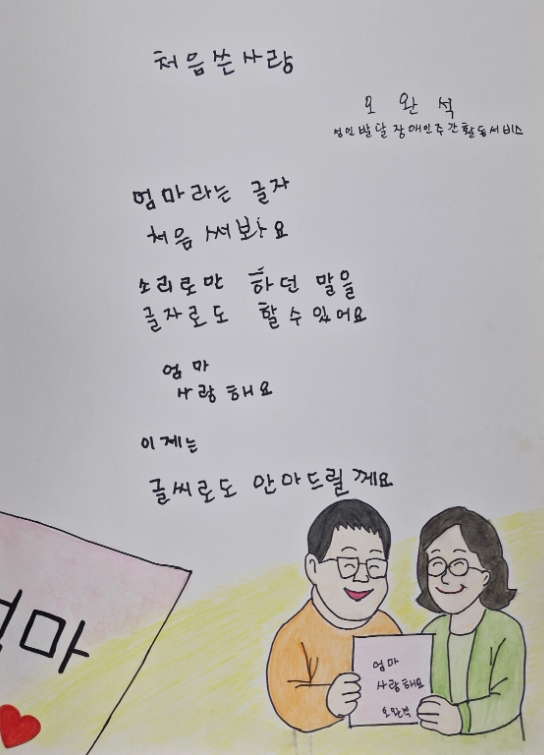 처음쓴사랑
오 완 석
성인발달장애인주간활동서비스
엄마라는 글자
처음 써봐요
소리로만 하던 말을
글자로도 할 수 있어요
엄마
사랑해요
이제는
글씨로도 안아드릴께요
엄마
사랑해요
오완석
엄마